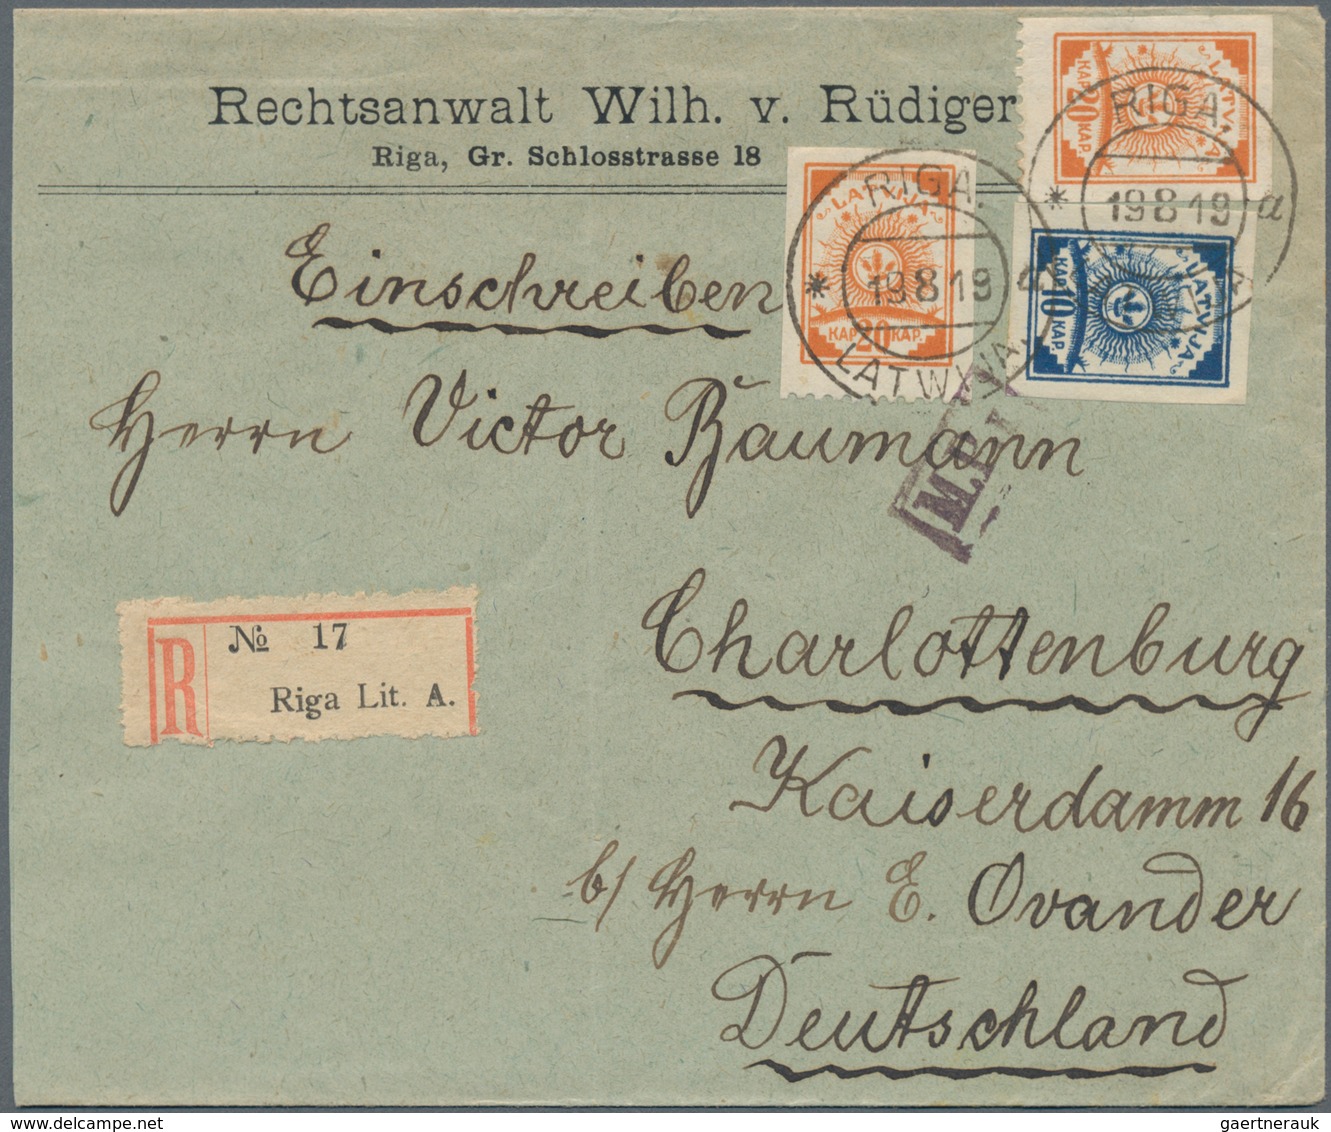 Rechtsanwalt Wilh. v. Rüdiger
Riga, Gr. Schlosstrasse 18
LATVIJA
KAP. 20 KAP.
LATVIJA
KAP. 20 KAP.
LATVIJA
KAP. 10 KAP.
RIGA.
19 8 19
LATWIJA.
RIGA.
19 8 19 a
Einschreiben
Herrn Victor Baumann
M.P.
R
№ 17
Riga Lit. A.
Charlottenburg
Kaiserdamm 16
b/ Herrn E. Ovander
Deutschland
gaertnerauk